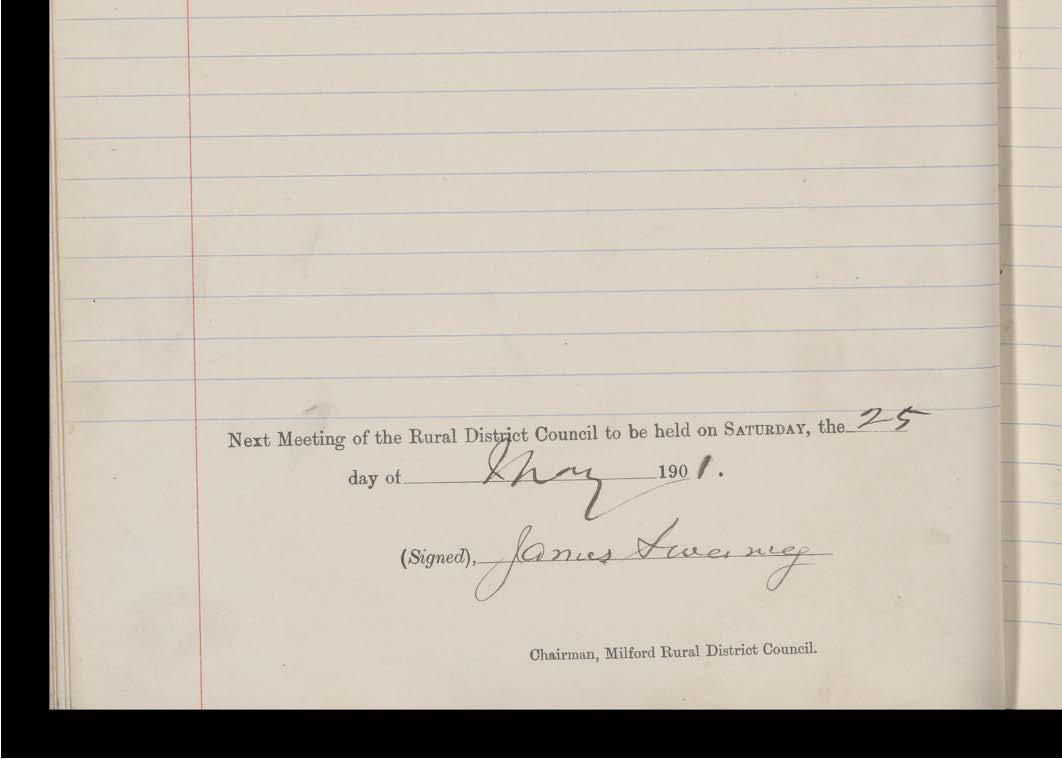 Next Meeting of the Rural District Council to be held on SATURDAY, the 25
day of May 1901.
(Signed), James Sweeney
Chairman, Milford Rural District Council.